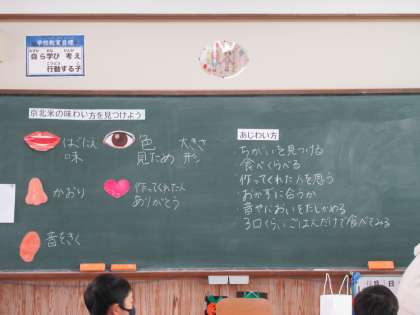 学校教育目標
自ら学び 考え
行動する子
京北米の味わい方を見つけよう
はごたえ
味
色
見ため
大きさ
形
かおり
作ってくれた人
ありがとう
音をきく
あじわい方
・ちがいを見つける
・食べくらべる
・作ってくれた人を思う
・おかずに合うか
・音やにおいをたしかめる
・3口くらいごはんだけで食べてみる